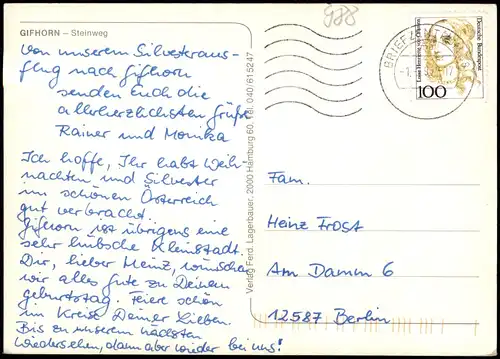 GIFHORN – Steinweg
988
Von unserem Silvesteraus-
flug nach Gifhorn
senden Euch die
allerherzlichsten Grüße
Rainer und Monika
Ich hoffe, Ihr habt Weih-
nachten und Silvester
im schönen Österreich
gut verbracht.
Gifhorn ist übrigens eine
sehr hübsche Kleinstadt.
Dir, lieber Heinz, wünschen
wir alles Gute zu Deinem
Geburtstag. Feiere schön
im Kreise Deiner Lieben.
Bis zu unserem nächsten
Wiedersehen, dann aber wieder bei uns!
Verlag Ferd. Lagerbauer, 2000 Hamburg 60, Tel. 040/615247
BRIEFZENTRUM
Deutsche Bundespost
Luise Henriette von Oranien
100
Fam.
Heinz Frost
Am Damm 6
12587 Berlin